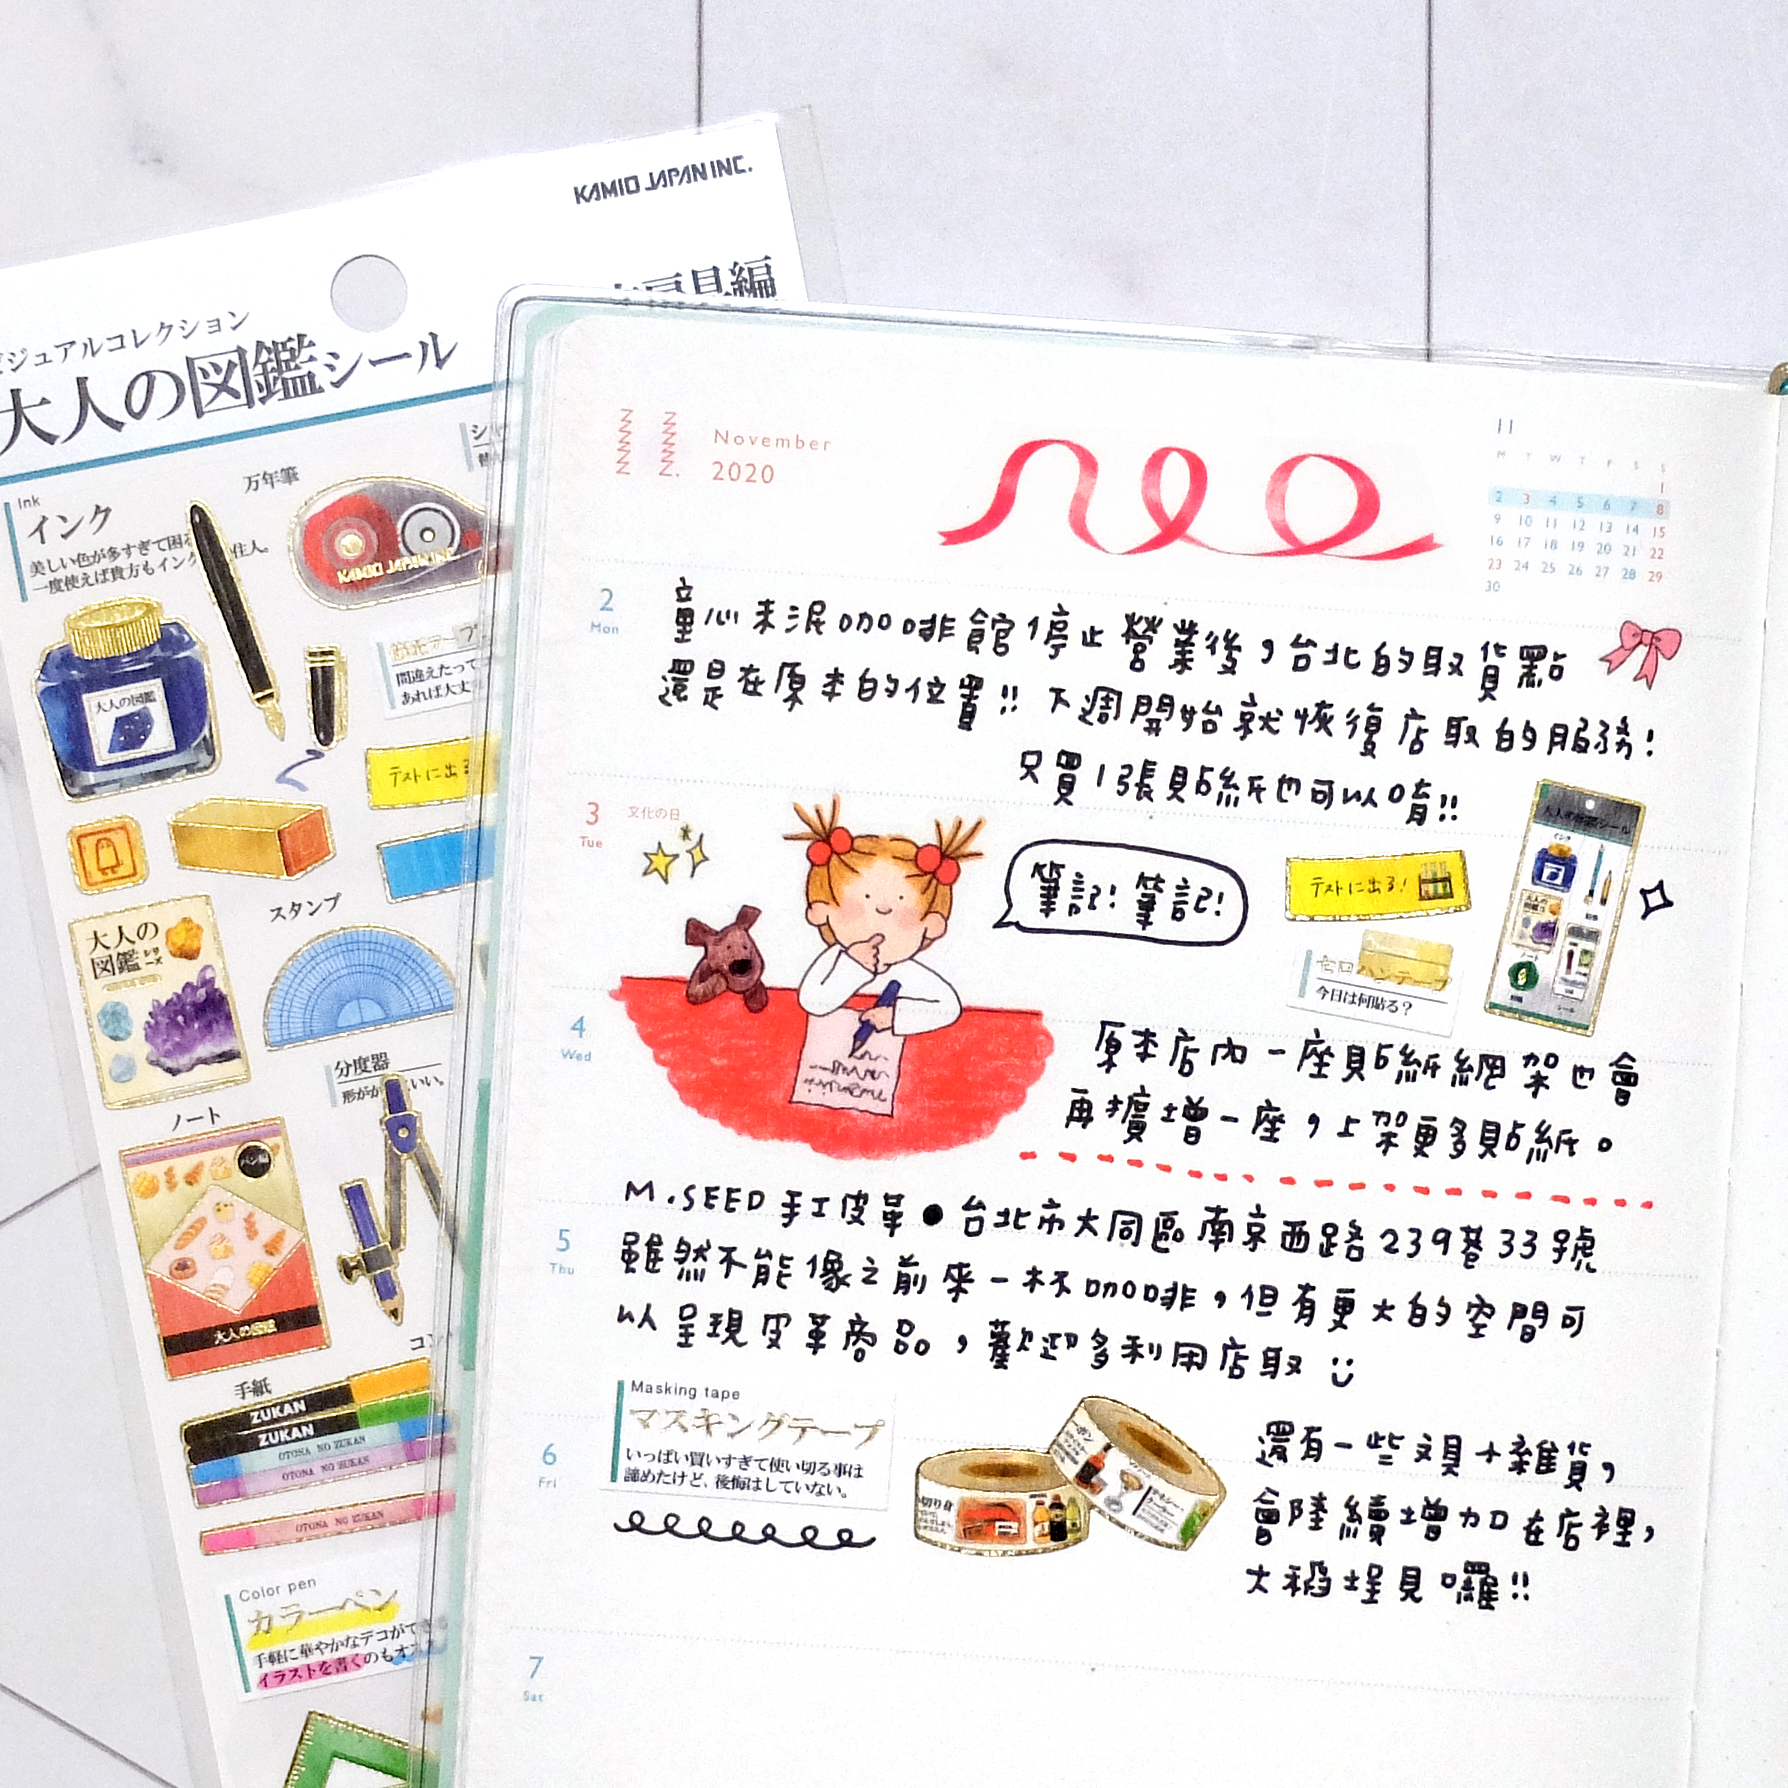 KAMIO JAPAN INC.
ビジュアルコレクション
大人の図鑑シール
房具編
Ink
インク
美しい色が多すぎて困
住人。
一度使えば貴方もインク
万年筆
KAMIO JAPAN INC.
大人の図鑑
間違えたって
あれば大丈
テストに出る
スタンプ
大人の
図鑑 シリーズ
分度器
形がか
いい。
ノート
パン編
大人の図鑑
コン
手紙
ZUKAN
ZUKAN
OTONA NO ZUKAN
OTONA NO ZUKAN
OTONA NO ZUKAN
Color pen
カラーペン
手軽に華やかなデコができる
イラストを書くのもオス
11.
November
2020
11
M T W T F S S
1
2 3 4 5 6 7 8
9 10 11 12 13 14 15
16 17 18 19 20 21 22
23 24 25 26 27 28 29
30
2
Mon
童心未泯咖啡館停止營業後，台北的取貨點
還是在原本的位置!! 下週開始就恢復店取的服務!
只買1張貼紙也可以唷!!
3
Tue
文化の日
筆記! 筆記!
テストに出る!
セロハンテープ
今日は何貼る？
大人の図鑑シール
インク
ノート
4
Wed
原本店內一座貼紙網架也會
再擴增一座，上架更多貼紙。
M.SEED 手工皮革●台北市大同區南京西路239巷33號
5
Thu
雖然不能像之前來一杯咖啡，但有更大的空間可
以呈現皮革商品，歡迎多利用店取
Masking tape
マスキングテープ
いっぱい買いすぎて使い切る事は
諦めたけど、後悔はしていない。
6
Fri
切り身
還有一些文具+雜貨，
會陸續增加在店裡，
大稻埕見囉!!
7
Sat